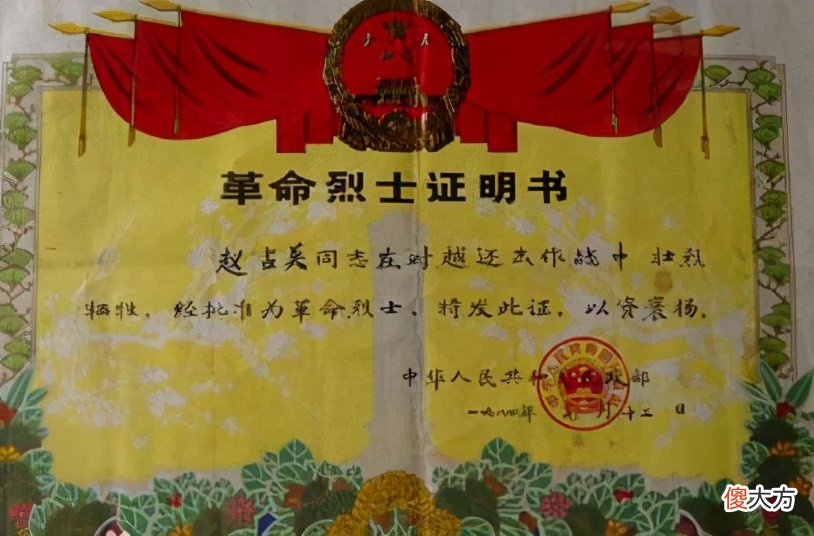 革命烈士证明书
赵吉英同志在对越还击作战中壮烈
牺牲，经批准为革命烈士，特发此证，以资褒扬。
中华人民共和 政部
一九八四年 月十二日
傻大方